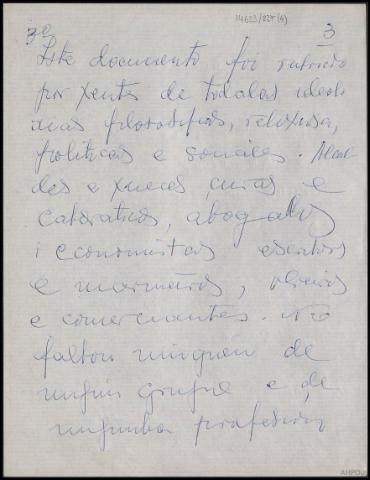 14623/225(4)
3º
3
Este documento foi suscrito
por xentes de todalas ideolo
xias filosoficas, relixiosa,
politicas e sociales. Alcal
des e xueces, curas e
catedraticos, abogados
i economistas escritores
e marineiros, obreiros
e comerciantes. Non
faltou ninguén de
ningún grupo e de
ningunha profesión
AHPOu